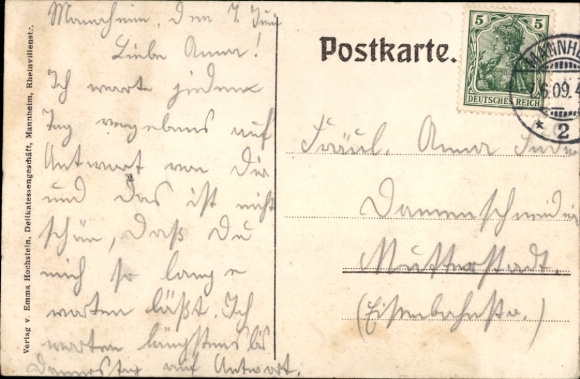 Mannheim, den 7. Juni
Liebe Anna!
Ich warte jeden
Tag vergebens auf
Antwort von Dir
und das ist nicht
schön, daß Du
mich so lange
warten läßt. Ich
warten längstens bis
Donnerstag auf Antwort.
Verlag v. Emma Hochstein, Delikatessengeschäft, Mannheim, Rheinvillenstr.
Postkarte.
5 5
DEUTSCHES REICH
MANNHE
6.09.4
* 2
Fräul. Anna
Damenschneiderin
Mutterstadt.
(Eisenbahnstr.)